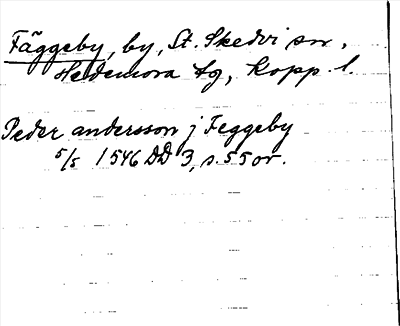 Fäggeby, by, St. Skedvi sn,
Hedemora tg, Kopp. l.
Peder andersson j Feggeby
5/5 1546 DD 3, s. 55 or.